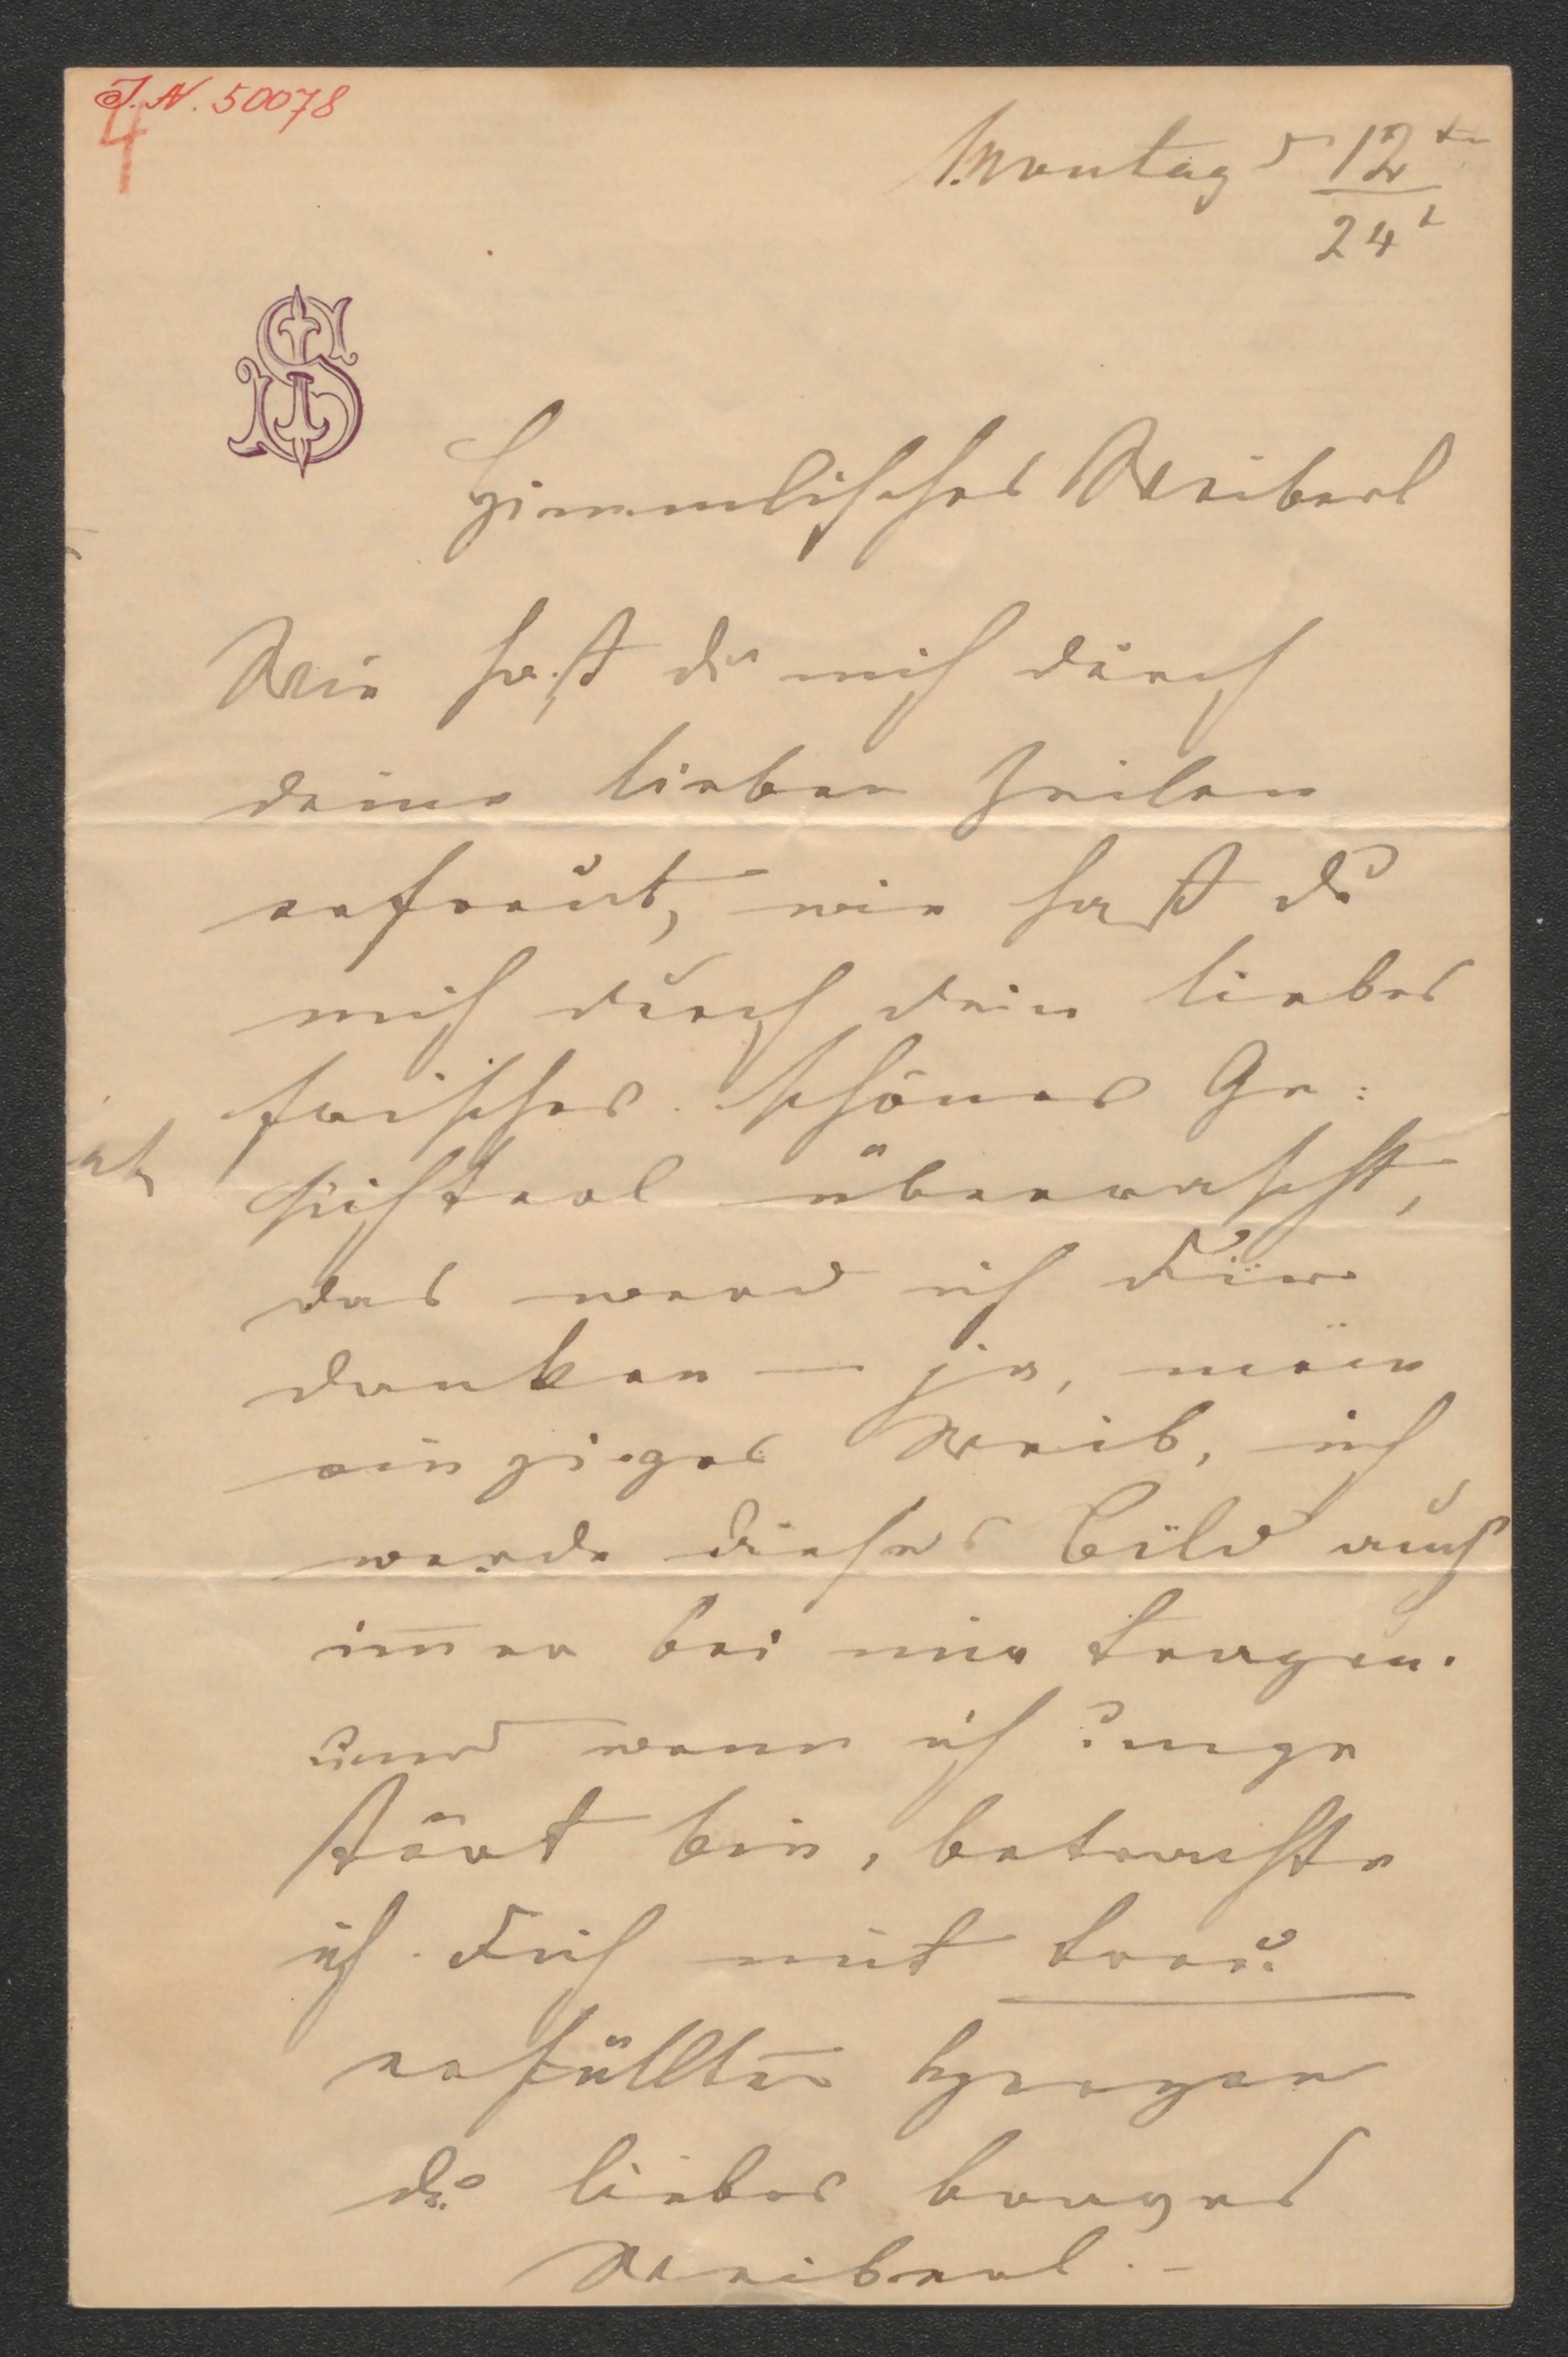 J. N. 50078
4
Montag d 12tn
24t
Himmlisches Weiberl
Wie hast du mich durch
deine lieben Zeilen
erfreut, wie hast du
mich durch dein liebes
frisches schönes Ge:
sichterl überrascht,
das werd ich Dir
danken — ja, mein
einziges Weib, ich
werde dieses Bild auch
im̄er bei mir tragen.
und wenn ich unge
stört bin, betrachte
ich Dich mit treu
erfüllten Herzen
du liebes braves
Weiberl. –